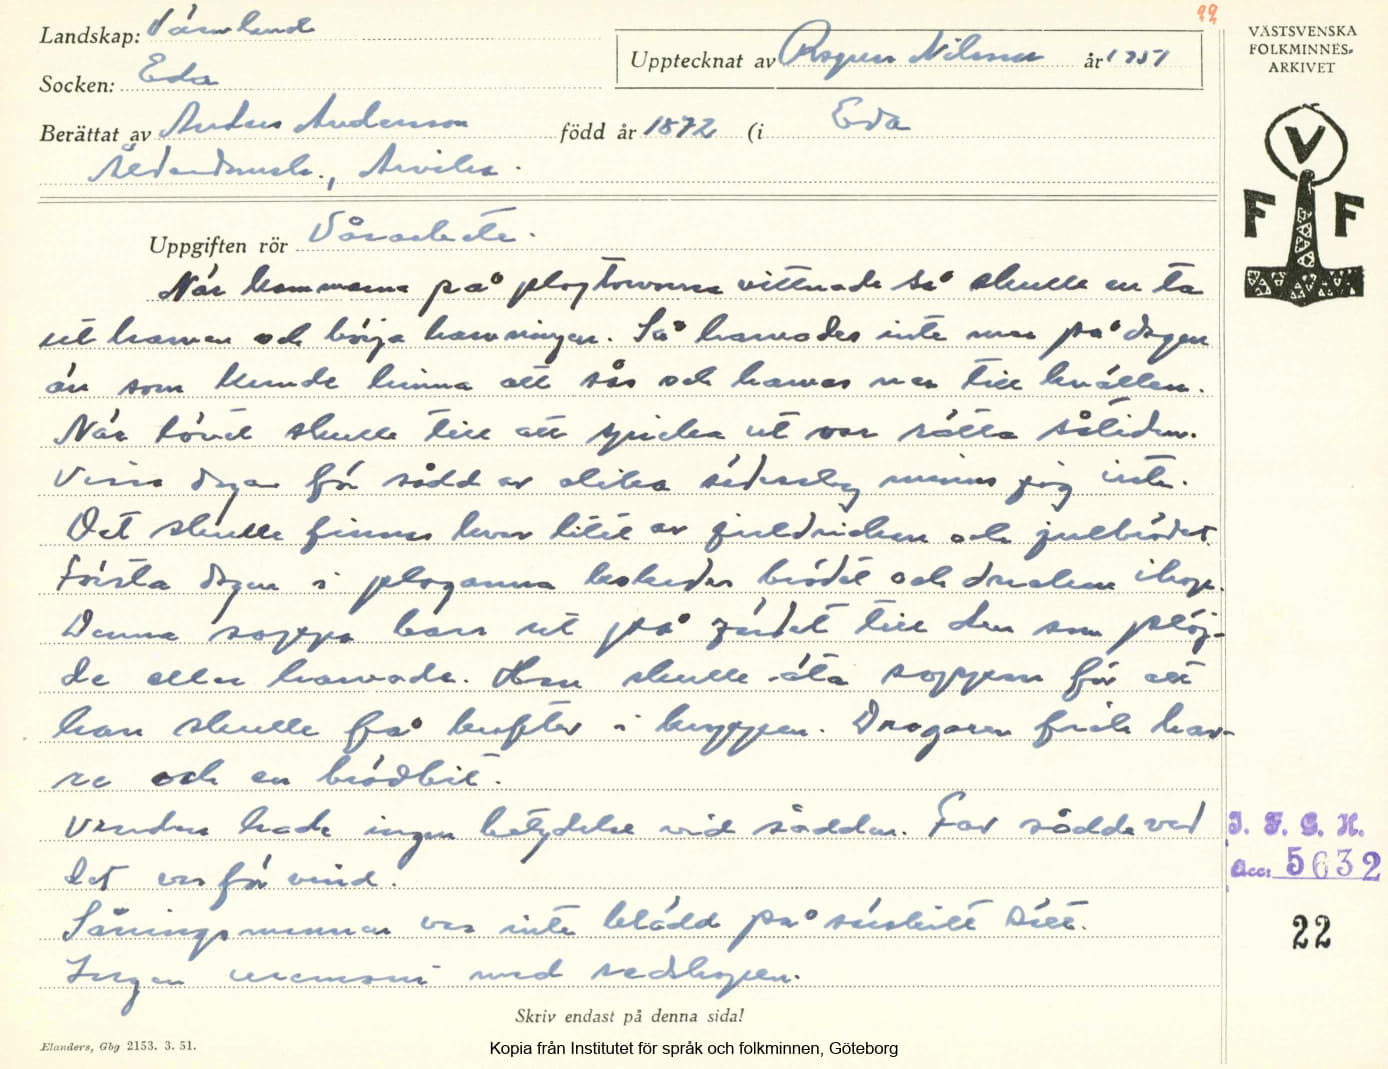 99
Landskap: Värmland
Upptecknat av Ragnar Nilsson år 1951
Socken: Eda
Berättat av Anders Andersson född år 1872 (i Eda
Ålderdomsh., Arvika.
VÄSTSVENSKA
FOLKMINNES-
ARKIVET
V
F F
Uppgiften rör Vårarbete.
När kammarna på plogtorvorna vittnade så skulle en ta
ut harven och börja harvningen. Så harvades inte mer på dagen
än som kunde hinna att sås och harvas ner till kvällen.
När lövet skulle till att spricka ut var rätta såtiden.
Vissa dagar för sådd av olika sädesslag minns jag inte.
Det skulle finnas kvar litet av juldrickan och julbrödet.
Första dagen i plogarna kokades brödet och drickan ihop.
Denna soppa bars ut på gärdet till den som plöj-
de eller harvade. Han skulle äta soppan för att
han skulle få krafter i kroppen. Dragaren fick hav-
re och en brödbit.
Vinden hade ingen betydelse vid sådden. Far sådde vad
det var för vind.
Såningsmannen var inte klädd på särskilt sätt.
Ingen ceremoni med redskapen.
I. F. G. H.
Acc: 5632
22
Skriv endast på denna sida!
Elanders, Gbg 2153. 3. 51.
Kopia från Institutet för språk och folkminnen, Göteborg